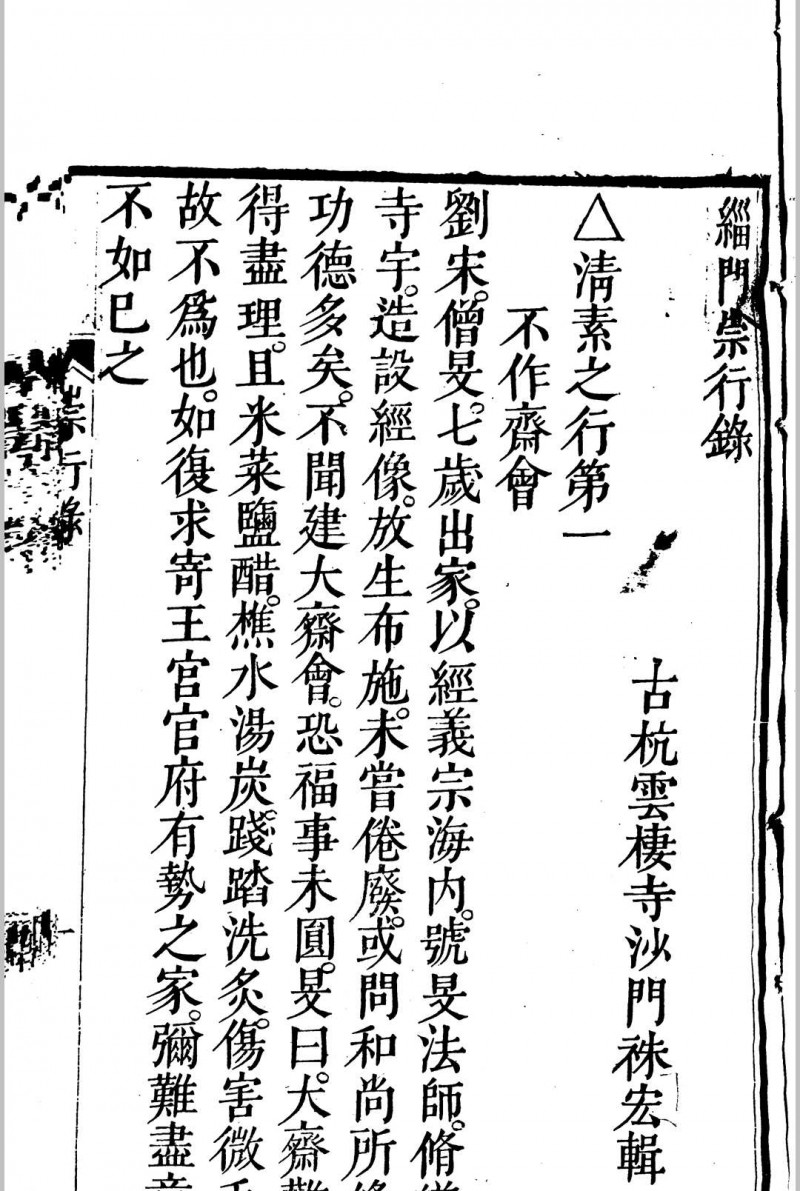 緇門崇行錄
古杭雲棲寺沙門祩宏輯
△清素之行第一
不作齋會
劉宋。僧旻。七歲出家。以經義宗海內。號旻法師。脩
寺宇。造設經像。放生布施。未嘗倦廢。或問和尚所
功德多矣。不聞建大齋會。恐福事未圓。旻曰。大齋
得盡理。且米菜鹽醋。樵水湯炭。踐踏洗炙。傷害微
故不為也。如復求寄王官官府有勢之家。彌難盡
不如已之
崇行錄
一